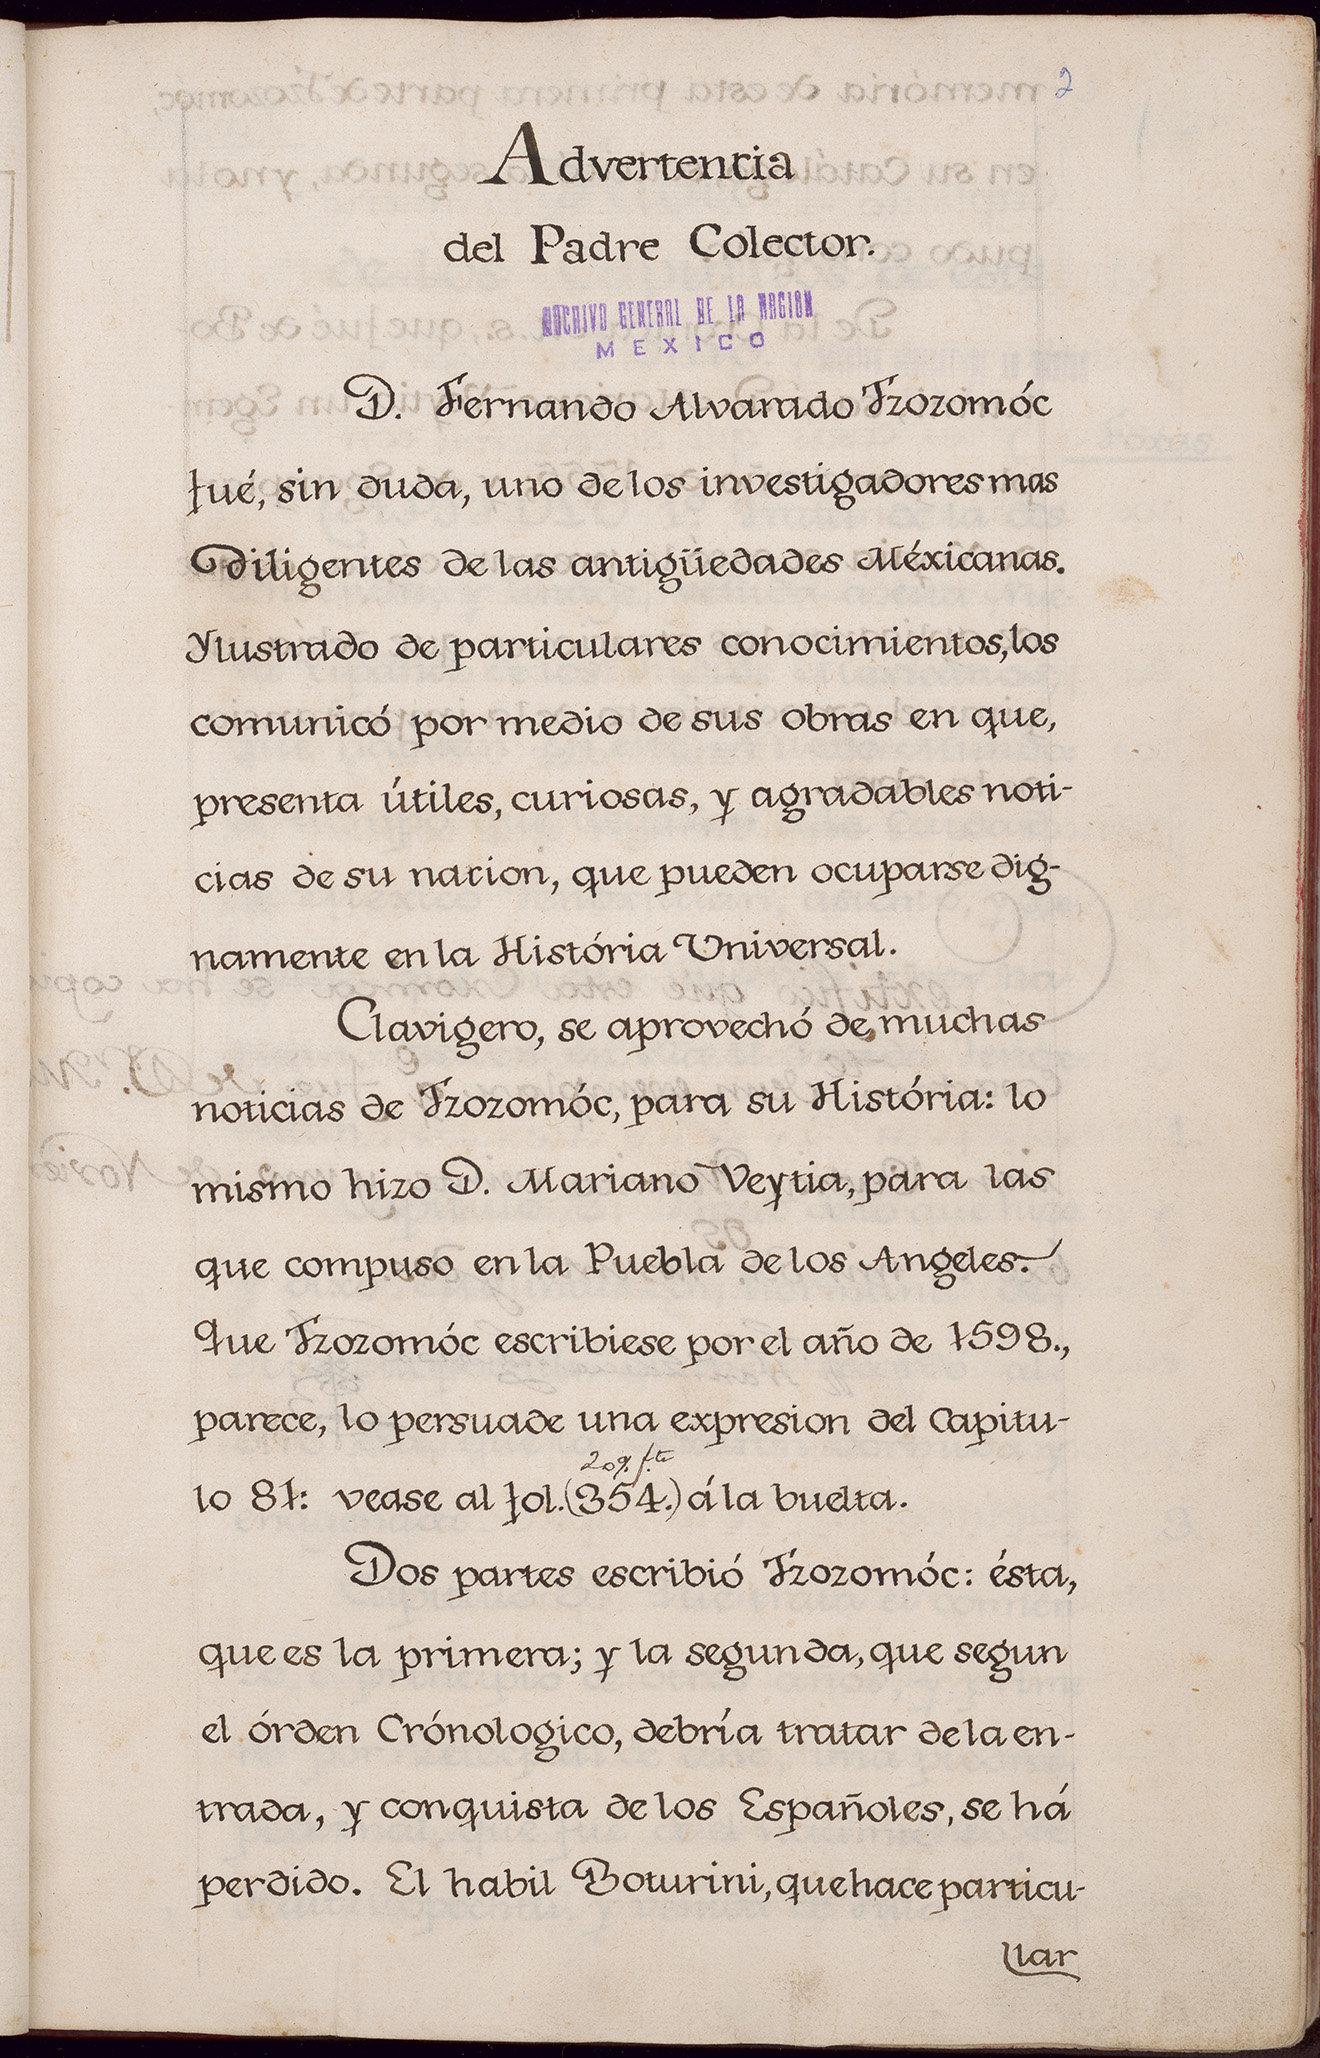 2
Advertencia
del Padre Colector.
ARCHIVO GENERAL DE LA NACION
MEXICO
D. Fernando Alvarado Tzozomóc
fué, sin duda, uno de los investigadores mas
diligentes de las antigüedades Méxicanas.
Ylustrado de particulares conocimientos, los
comunicó por medio de sus obras en que,
presenta útiles, curiosas, y agradables noti-
cias de su nacion, que pueden ocuparse dig-
namente en la História Universal.
Clavigero, se aprovechó de muchas
noticias de Tzozomóc, para su História: lo
mismo hizo D. Mariano Veytia, para las
que compuso en la Puebla de los Angeles.
Que Tzozomóc escribiese por el año de 1598.,
parece, lo persuade una expresion del Capitu-
209. f.te
lo 81: vease al fol. (354.) á la buelta.
Dos partes escribió Tzozomóc: ésta,
que es la primera; y la segunda, que segun
el órden Crónologico, debría tratar de la en-
trada, y conquista de los Españoles, se há
perdido. El habil Boturini, que hace particu-
lar